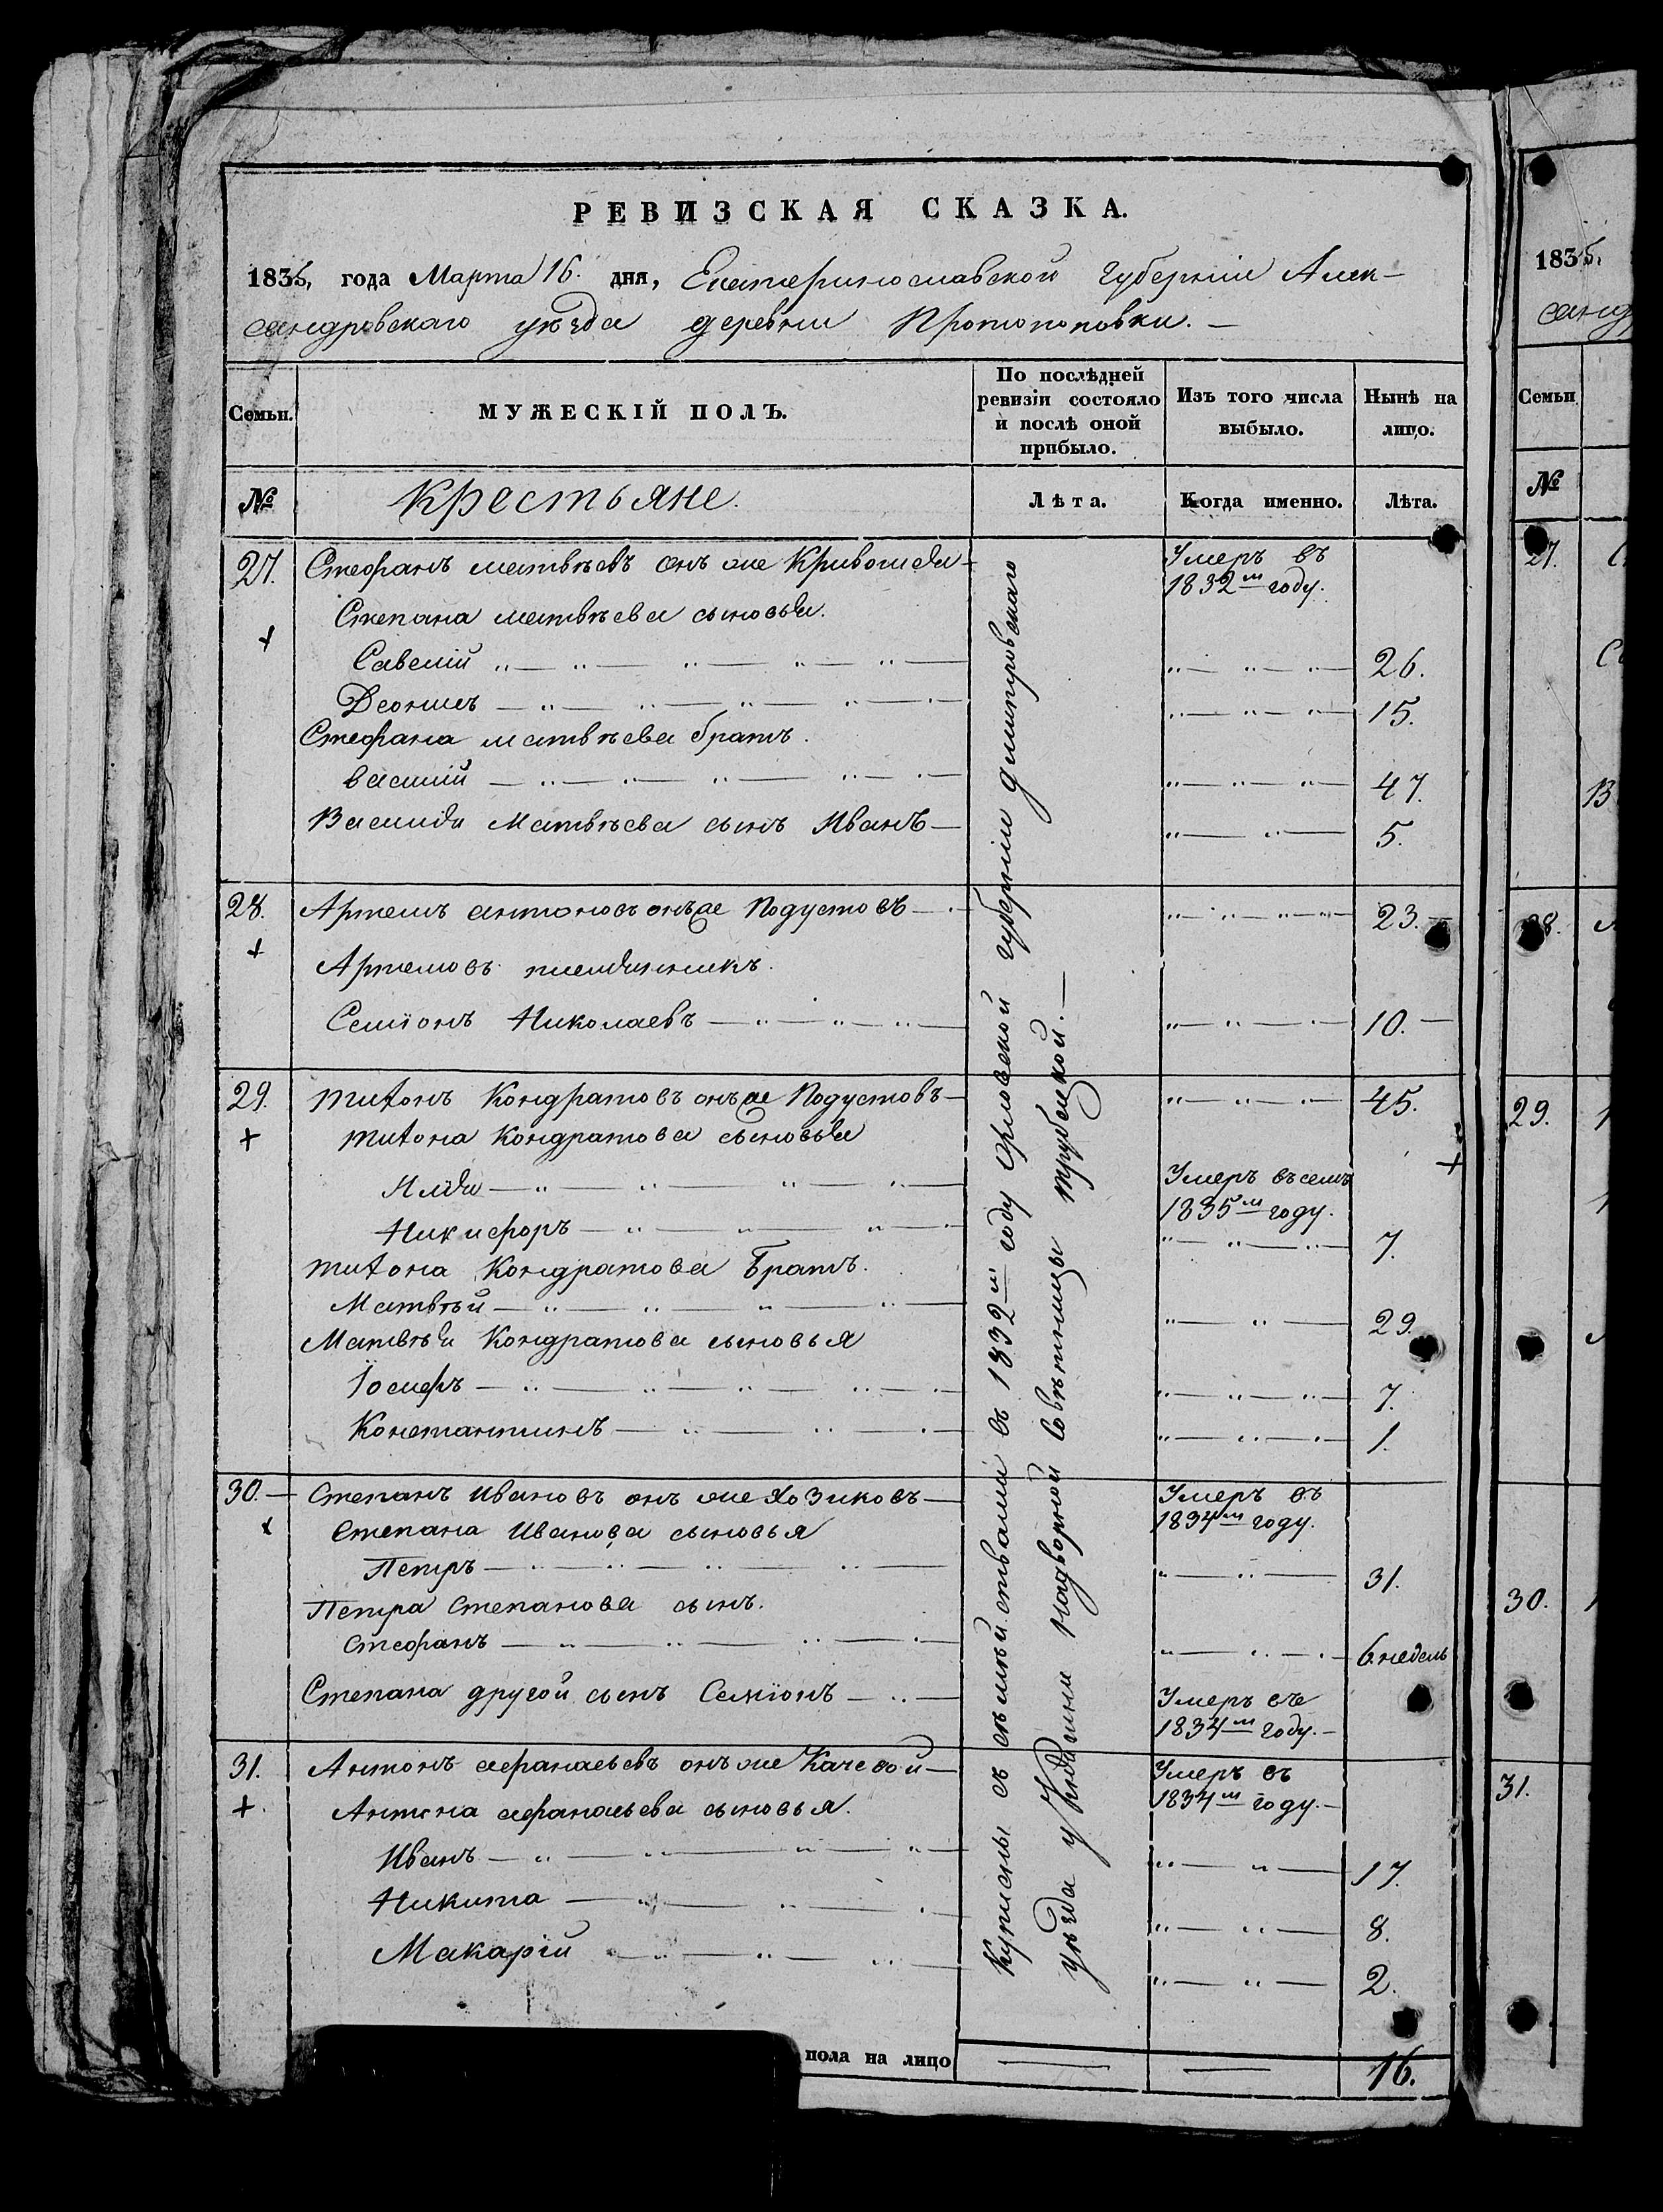 РЕВИЗСКАЯ СКАЗКА.
1835, года Марта 16. дня, Екатеринославской Губерніи Алек-
сандровскаго уѣзда деревни Протопоповки. —
Семьи.
МУЖЕСКІЙ ПОЛЪ.
По послѣдней
ревизіи состояло
и послѣ оной
прибыло.
Изъ того числа
выбыло.
Нынѣ на
лицо.
№
Крестьяне.
Лѣта.
Когда именно.
Лѣта.
27. Стефанъ матвѣевъ онъ же
Умеръ въ
1832м году.
Степана матвѣева сыновья.
Савелій 26.
15.
Стефана матвѣева братъ.
василій 47.
Василия Матвѣева сынъ Иванъ 5.
28. Артемъ антоновъ онъже Подустовъ 23.
Артемовъ племянникъ.
Семіонъ Николаевъ 10.
29. титонъ Кондратовъ онъже Подустовъ 45.
титона Кондратова сыновья
Илия
Умеръ въсемъ
1835м году.
Никифоръ 7.
титона Кондратова Братъ.
Матвѣй 29.
Матвѣя Кондратова сыновья
Іосифъ 7.
Константинъ 1.
30. Степанъ Ивановъ онъ же Хозиковъ
Умеръ въ
1834м году.
Степана Иванова сыновья
Петръ 31.
Петра Степанова сынъ.
Стефанъ 6.недель
Степана другой сынъ Семіонъ
Умеръ въ
1834м году.
31. Антонъ афанасьевъ онъ же Качевой
Умеръ въ
1834м году.
Антона афанасьева сыновья.
Иванъ 17.
Никита 8.
Макарій 2.
Куплены съ семѣйствами въ 1832м году Орловской губерніи дмитровскаго
уѣзда у Княгини надворной Совѣтницы трубецкой. —
пола на лицо 16.
1835,
санд
Семьи
№
27.
28.
29.
30.
31.